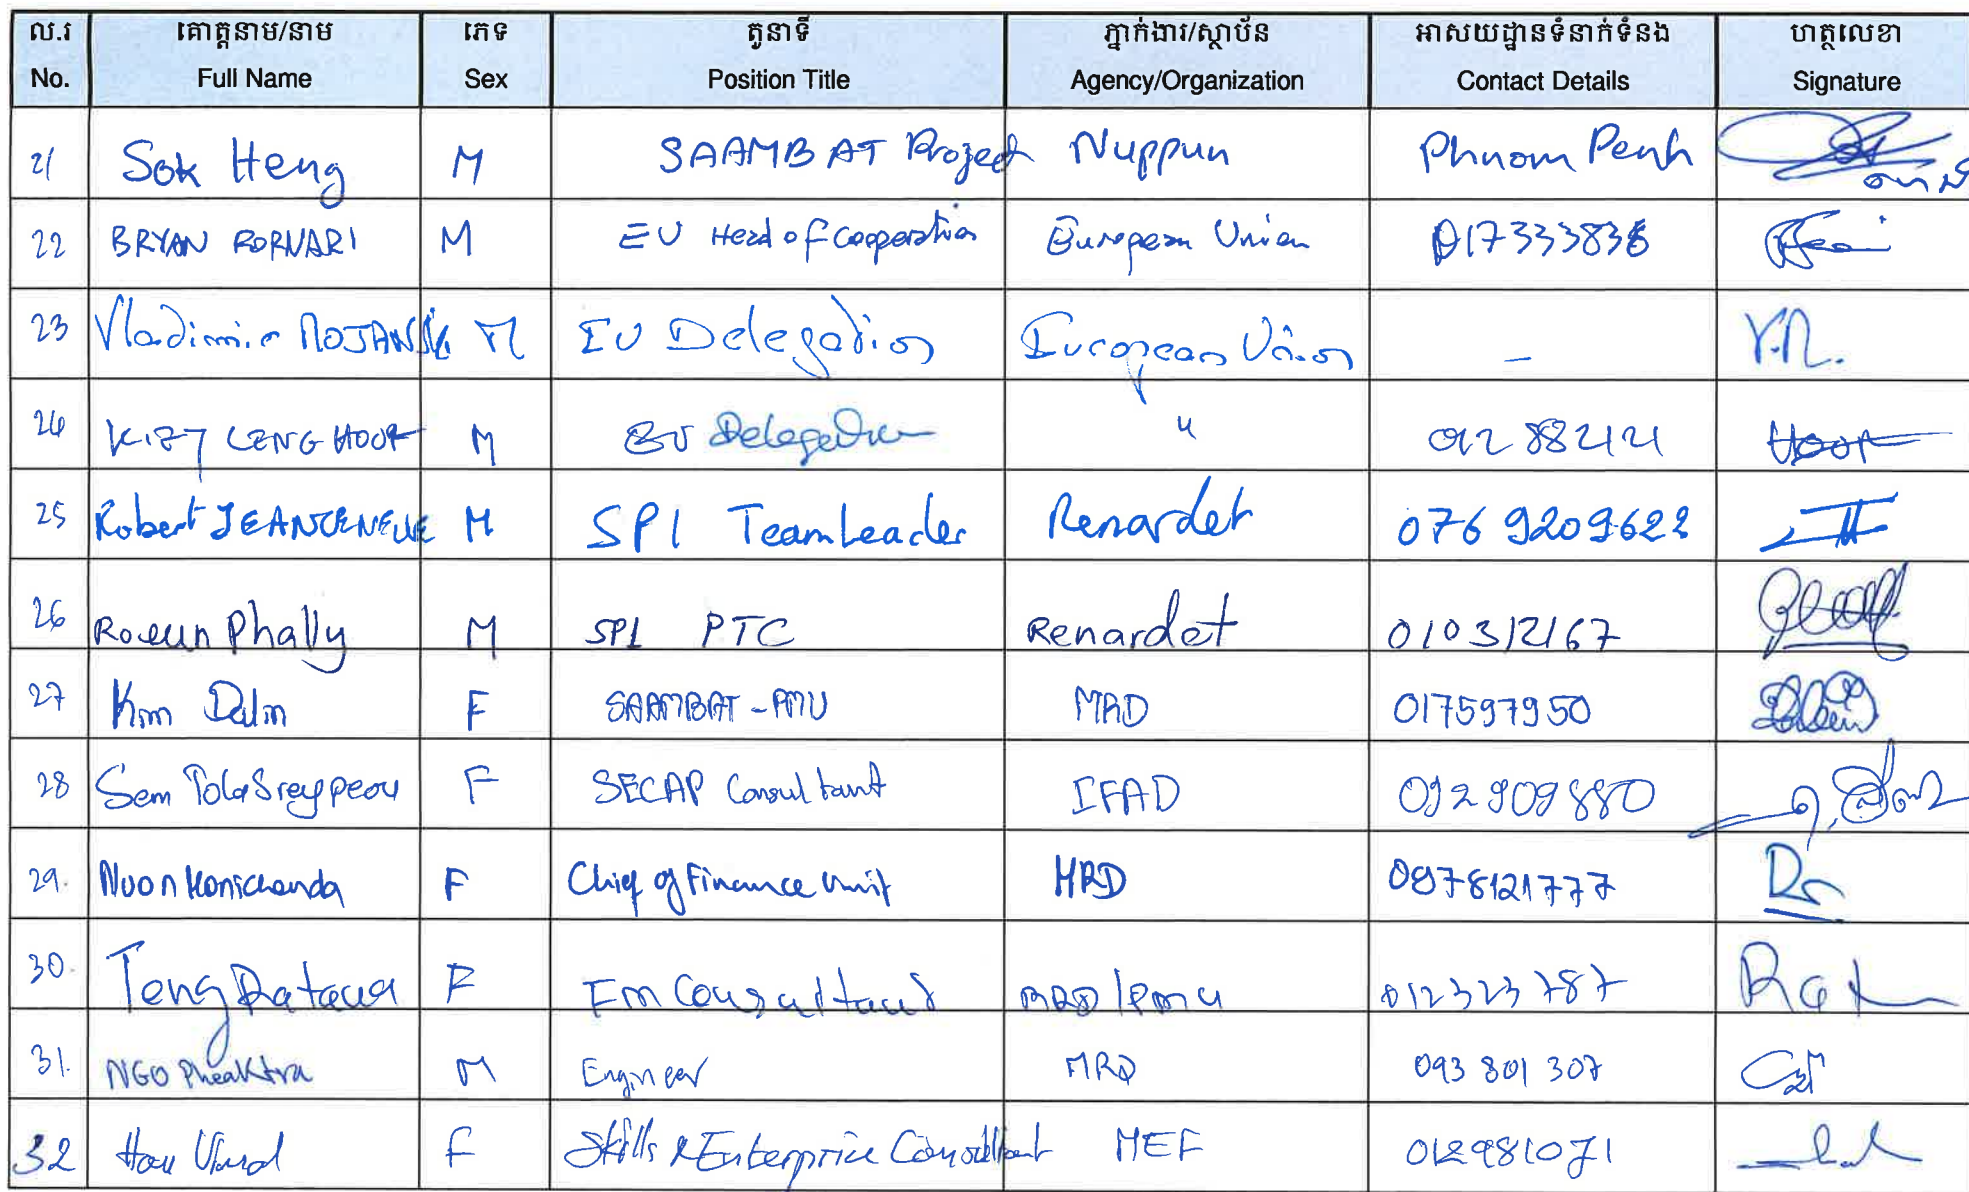 ល.រ គោត្តនាម/នាម ភេទ តួនាទី ភ្នាក់ងារ/ស្ថាប័ន អាសយដ្ឋានទំនាក់ទំនង ហត្ថលេខា
No. Full Name Sex Position Title Agency/Organization Contact Details Signature
21 Sok Heng M SAAMBAT Project Nuppun Phnom Penh
22 BRYAN FORNARI M EU Head of Cooperation European Union 017333836
23 Vladimir M EU Delegation European Union - V.R.
24 LENG HOUR M EU Delegation " 012 882121
25 Robert JEANGENEUE M SPI Team Leader Renardet 076 9209622
26 Roeun Phally M SPI PTC Renardet 010312167
27 Kim Dalin F SAAMBAT-PMU MRD 017597950
28 Sem Tola Sreypeou F SECAP Consultant IFAD 092909880
29. Nuon Konichanda F Chief of Finance Unit MRD 0978121777
30. Teng Ratana F FM Consultant MRD/PMU 012323787
31. NGO Pheaktra M Engineer MRD 093 801 307
32 F Skills & Enterprise Consultant MEF 012981071